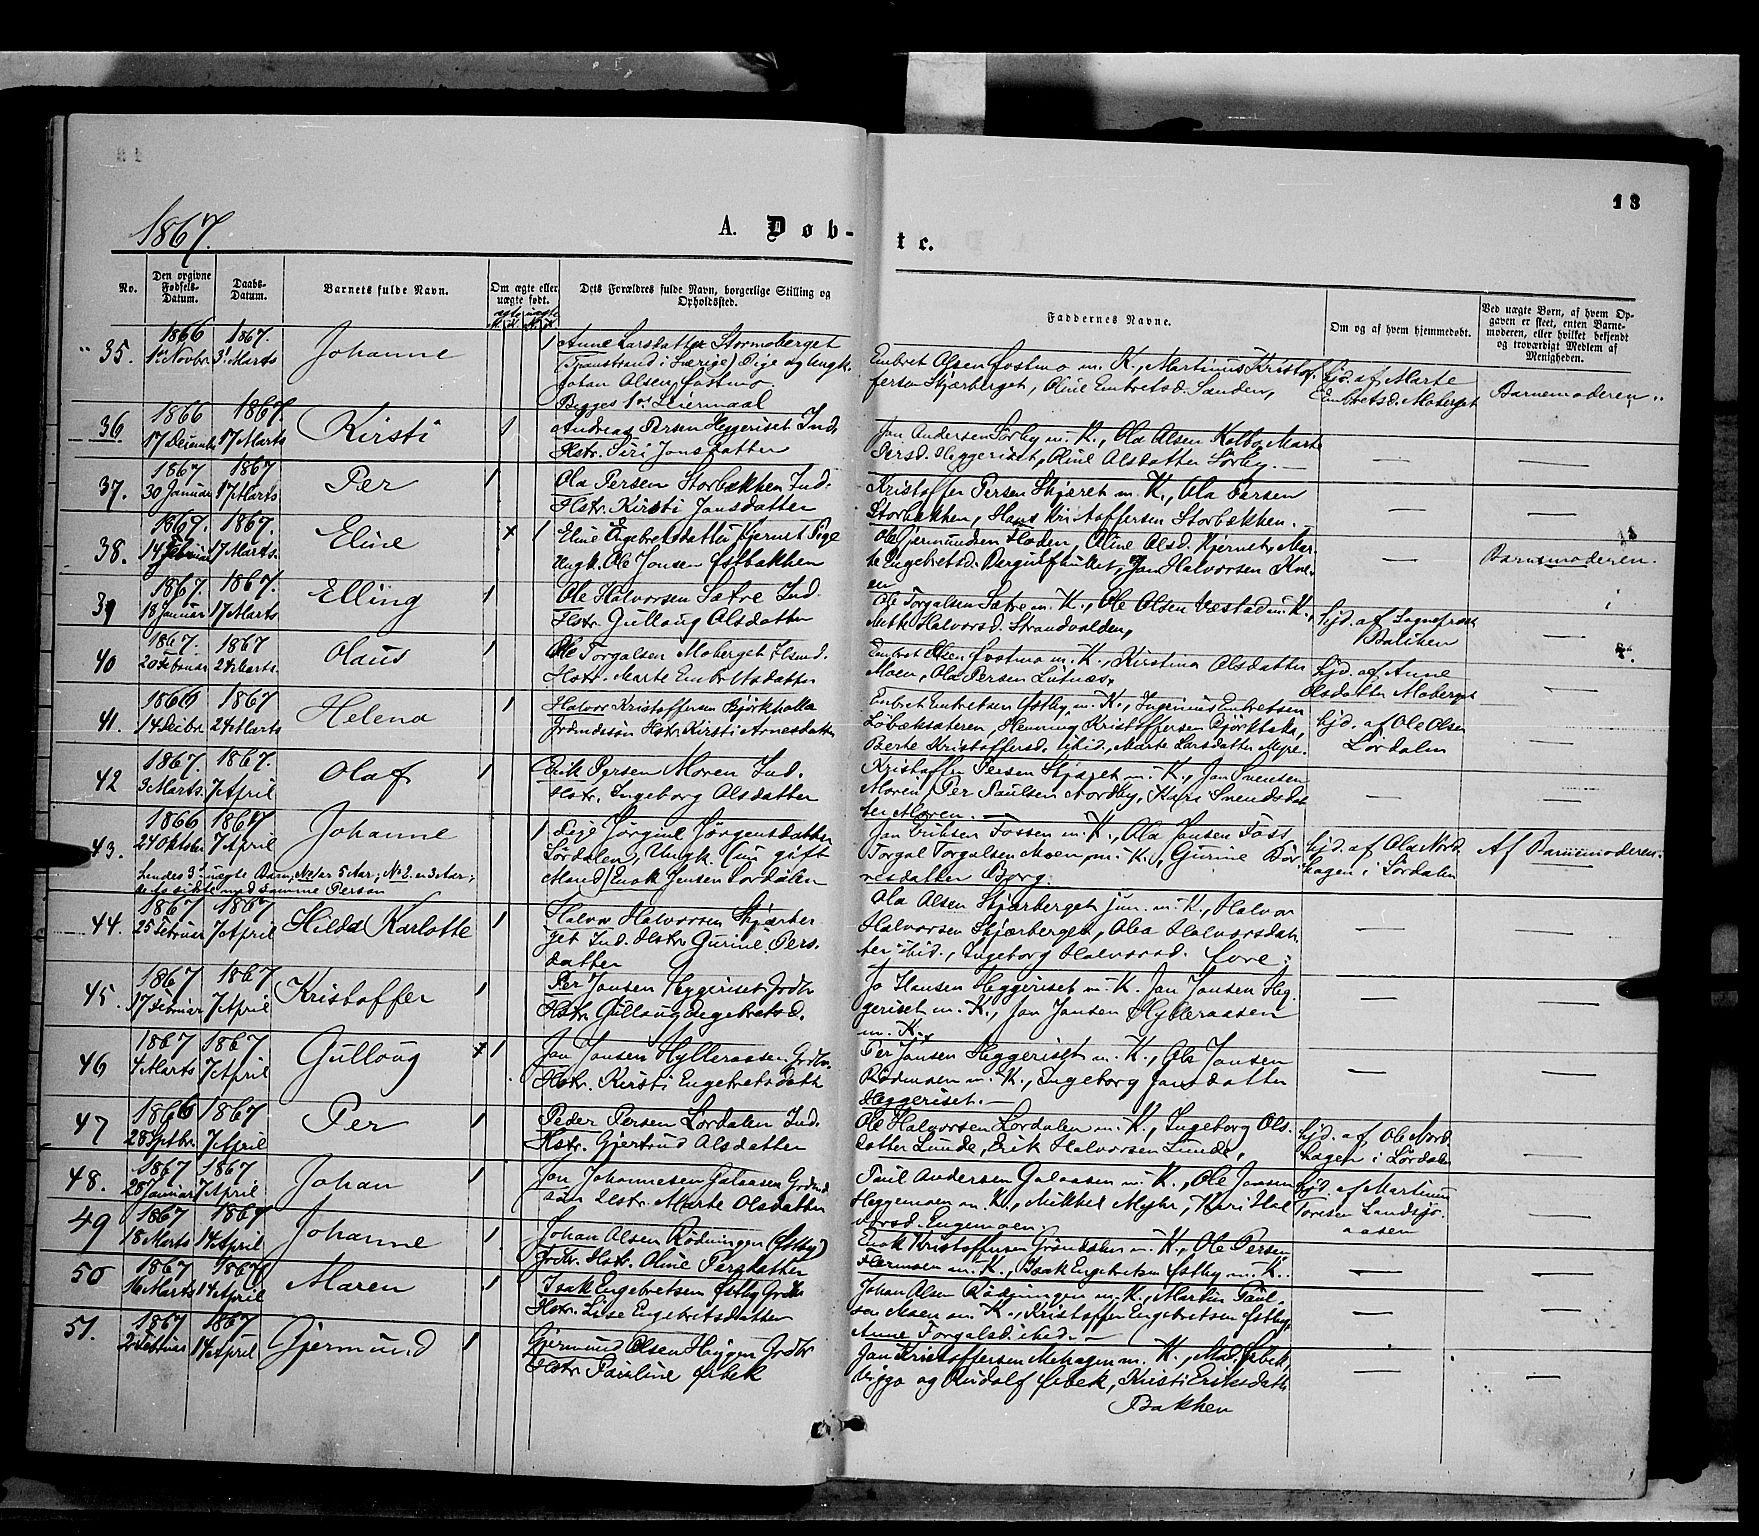 13
1867.
A. Døb-te.
No.
Den opgivne Fødsels-Datum.
Daabs-Datum.
Barnets fulde Navn.
Om ægte eller uægte født.
ægte uægte
M. K. M. K.
Dets Forældres fulde Navn, borgerlige Stilling og Opholdssted.
Faddernes Navne.
Om og af hvem hjemmedøbt.
Ved uægte Børn, af hvem Opgaven er skeet, enten Barnemoderen, eller hvilket bekjendt og troværdigt Medlem af Menigheden.
35.
1866 1867.
1ste Novbr 3 Marts
Johanne
1
Anne Larsdatter Stormoberget
(Transtrand i Sverige) Pige og Ungk.
Johan Olsen Jostmo
Begges 1ste Leiermaal
Embret Olsen Jostmo m. K., Martinus Kristof-
fersen Skjærberget, Oline Embretsd. Sanden,
hjd. af Marte
Embretsd. Moberget
Barnemoderen
36
1866 1867.
17 Decemb. 17 Marts
Kirsti
1
Andreas Persen Heggeriset Ind.
Hstr. Siri Jonsdatter
Jon Andersen Sørby m. K., Ola Olsen Kolbo, Marte
Persd. Heggeriset, Oline Olsdatter Sørby. —
—
—
37.
1867 1867
30 Januar 17 Marts
Per
1
Ola Persen Storbækken Ind.
Hstr. Kirsti Jonsdatter
Kristoffer Persen Skjæret m. K., Ola Persen
Storbækken, Hans Kristoffersen Storbækken. —
—
—
38.
1867. 1867.
14 Februar 17 Marts.
Eline
x 1
Eline Engebretsdatter Kjernet Pige
Ungk. Ole Jonsen Østbakken
Ole Gjermundsen Floden, Oline Olsd. Kjernet, Mar-
te Engebretsd. Bergulfhullet, Jon Halvorsen Kne-
en
—
Barnemoderen.
39
1867. 1867.
18 Januar 17 Marts
Elling
1
Ole Halvorsen Sætre Ind.
Hstr. Gulloug Olsdatter
Ole Torgalsen Sætre m. K., Ole Olsen Væstad m. K.,
Mette Halvorsd. Strandvolden,
hjd. af Sognepræst
Balchen
—
40
1867. 1867
20 Februar 24 Marts.
Olaus
1
Ole Torgalsen Moberget Husmd.
Hstr. Marte Embretsdatter
Embret Olsen Jostmo m. K., Kirstina Olsdatter
Moen, Ola Persen Lutnæs,
hjd. af Anne
Olsdatter Moberget
—
41.
1866 1867
14 Decbr 24 Marts
Helena
1
Halvor Kristoffersen Bjørkhalla
Jordmdssøn Hstr. Kirsti Arnesdatter
Embret Embretsen Østby m. K., Ingerius Embretsen
Løbæksæteren, Henning Kristoffersen Bjørkhala,
Berte Kristoffersd. ibid., Marte Larsdatter Myre.
hjd. af Ole Olsen
Lørdalen
—
42
1867 1867.
3 Marts. 7 April
Olaf
1
Erik Persen Moren Ind.
Hstr. Ingeborg Olsdatter
Kristoffer Persen Skjæret m. K., Jon Svensen
Moren, Per Paulsen Nordby, Kari Svendsdat-
ter Moren. —
—
—
43.
1866 1867
24 Oktober 7 April
Johanne
1
Pige Jørgine Jørgensdatter
Lørdalen, Ungk. (nu gift
Mand) Enok Jensen Lørdalen
hendes 3die uægte Barn, No 1 er 5 Aar, No 2 er 3 Aar;
de to sidste med samme Person
Jon Eriksen Fossen m. K., Ola Jonsen Foss
Torgal Torgalsen Moen m. K., Gurine Bør-
resdatter Borg.
hjd. af Ola Nord-
hagen i Lørdalen
Af Barnemoderen.
44.
1867 1867
25 Februar 7 April
Hilda Karlotte
1
Halvor Halvorsen Skjærber-
get Ind. Hstr. Gurine Pers-
datter
Ola Olsen Skjærberget jun. m. K., Halvor
Halvorsen Skjærberget, Olea Halvorsdat-
ter ibid., Ingeborg Halvorsd.
—
—
45.
1867 1867
17 Februar 7 April
Kristoffer
1
Per Jonsen Heggeriset Grdbr
Hstr. Gulloug Engebretsd.
Jo Hansen Heggeriset m. K. Jon Jonsen Heg-
geriset m. K., Jon Jonsen Hylleraasen
m. K.
—
—
46
1867 1867
4 Marts 7 April
Gulloug
x 1
Jon Jonsen Hylleraasen Grdbr.
Hstr. Kirsti Engebretsdatt.
Per Jonsen Heggeriset m. K., Ole Jonsen
Rødmoen m. K., Ingeborg Jonsdatter
Heggeriset. —
—
—
47
1866 1867.
28 Septbr. 7 April
Per
1
Peder Persen Lørdalen Ind.
Hstr. Gjertrud Olsdatter
Ole Halvorsen Lørdalen m. K., Ingeborg Ols-
datter Lunde, Erik Halvorsen Lunde,
hjd. af Ole Nord-
hagen i Lørdalen
—
48.
1867 1867
28 Januar 7 April
Johan
1
Jon Johannesen Galaasen Grdmds-
søn Hstr. Marte Olsdatter
Paul Andersen Galaasen m. K., Ole Jonsen
Heggemoen m. K., Mikkel Myhr, Kari Hal-
vorsd. Engemoen.
hjd. af Martinus
Toresen Landsjø-
aasen
—
49
1867 1867
18 Marts 14 April
Johanne
1
Johan Olsen Rødningen (Østby)
Grdbr. Hstr. Oline Persdatter
Enok Kristoffersen Grøndalen m. K., Ole Persen
Flermoen m. K., Isak Engebretsen Østby m. K.
—
—
50
1867 1867
16 Marts 14 April
Maren
1
Isak Engebretsen Østby Grdbr
Hstr. Lise Engebretsdatter
Johan Olsen Rødningen m. K., Martin Paul-
sen Moen m. K., Kristoffer Engebretsen Østby,
Anne Torgalsd. ibid. —
—
—
51.
1867 1867
14 April
Gjermund
1
Gjermund Olsen Haugen Grdbr
Hstr. Pauline Ørbek
Jon Kristoffersen Nehagen m. K., Mad. Ørbek,
Viggo og Rudolf Ørbek, Kristi Eriksdatt.
Bakken
—
—